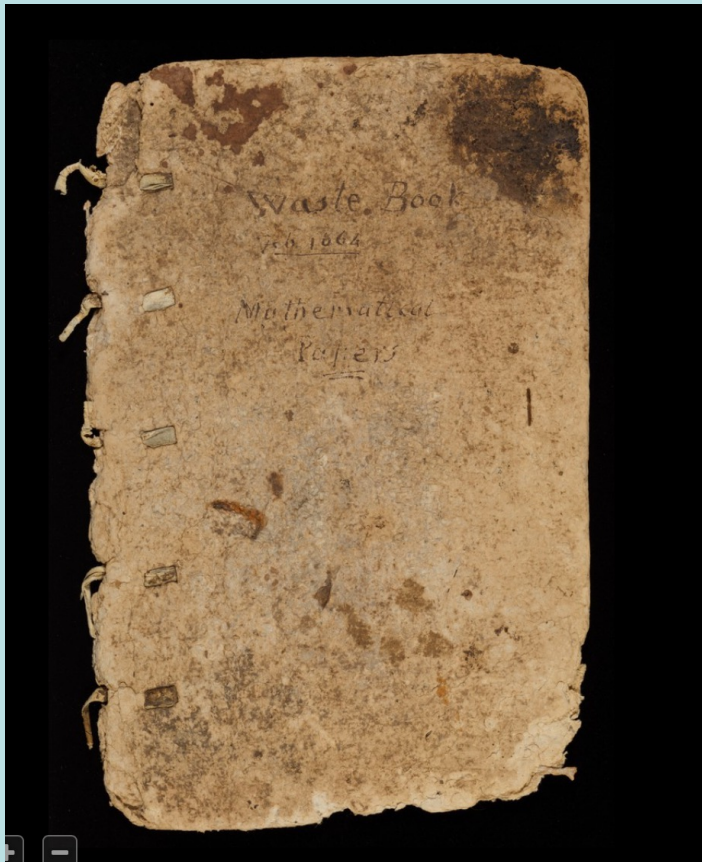 Waste. Book
Feb 1664
Mathematical
Papers